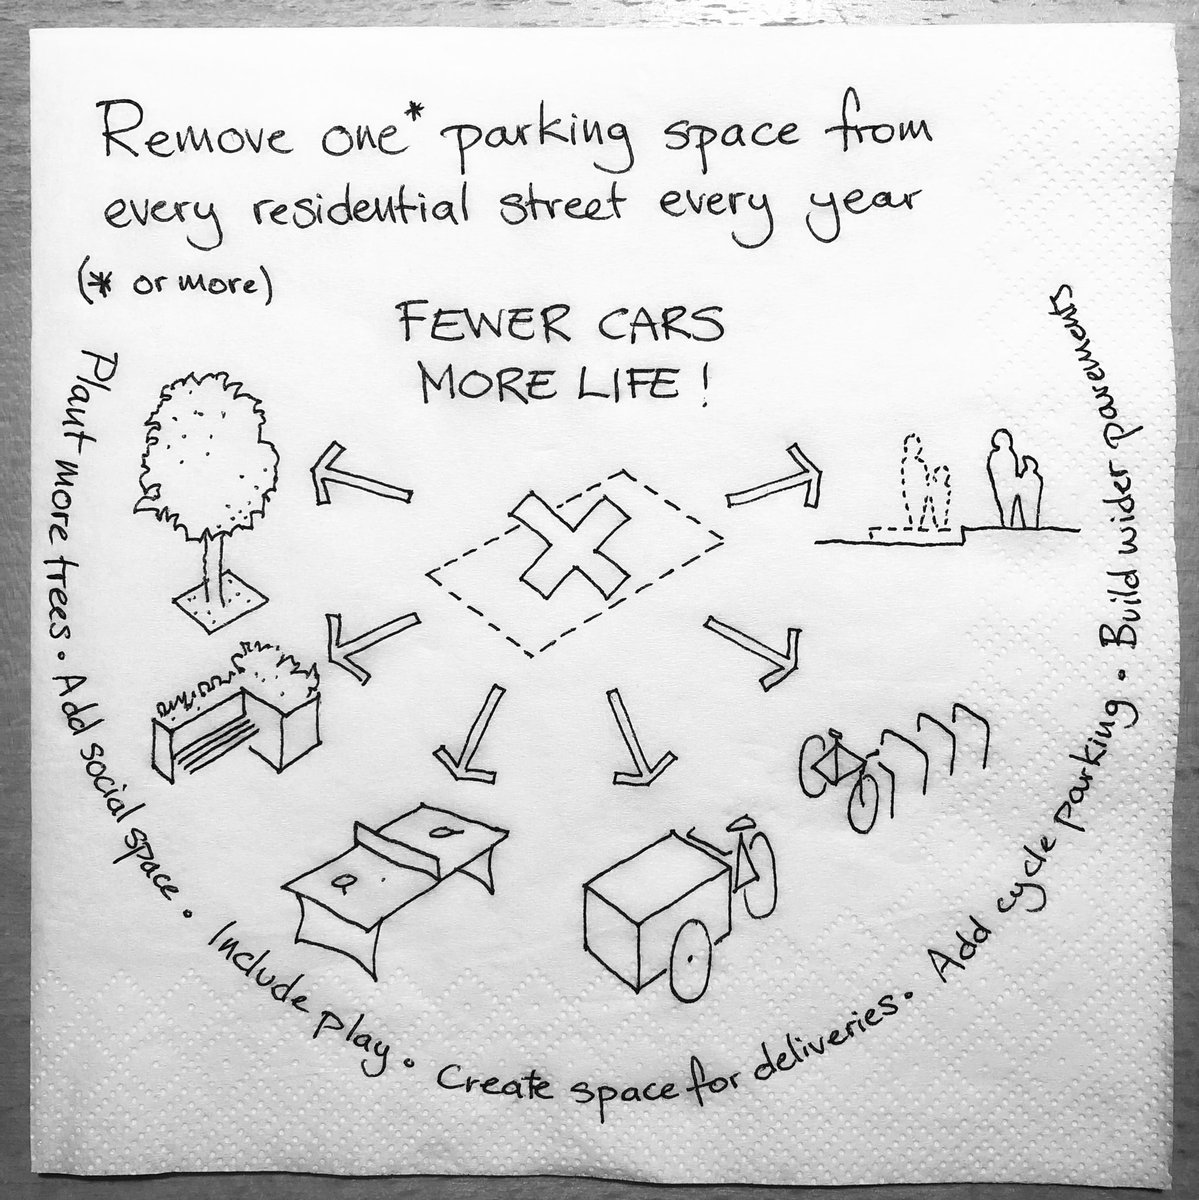 Remove one* parking space from
every residential street every year
(* or more)
FEWER CARS
MORE LIFE!
Plant more trees. Add social space. Include play. Create space for deliveries. Add cycle parking. Build wider pavements